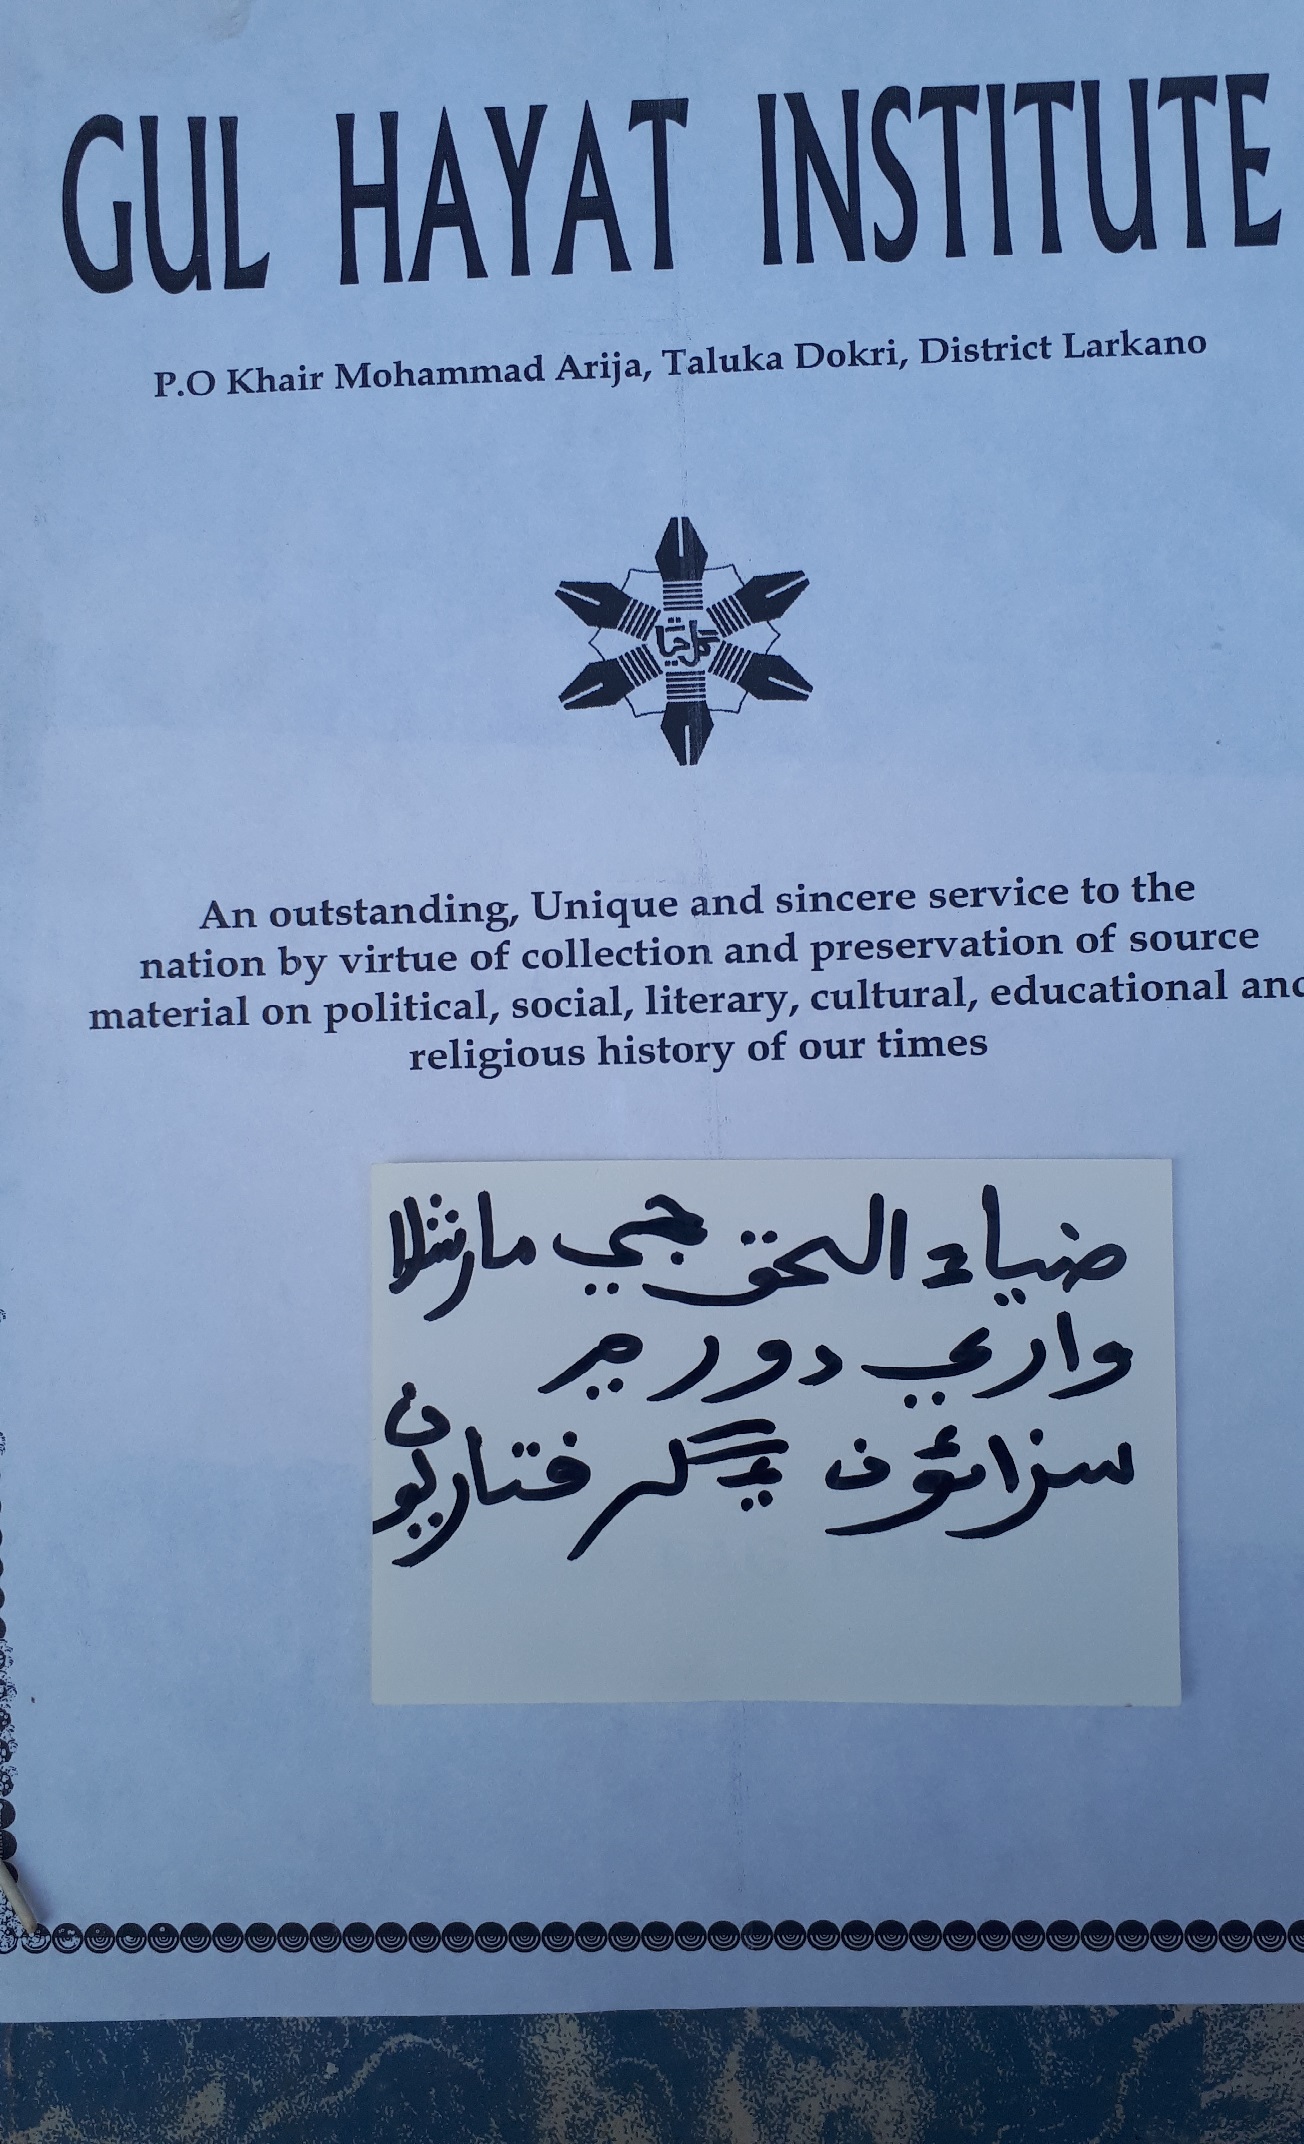 GUL HAYAT INSTITUTE
P.O Khair Mohammad Arija, Taluka Dokri, District Larkano
گل حيات
An outstanding, Unique and sincere service to the
nation by virtue of collection and preservation of source
material on political, social, literary, cultural, educational and
religious history of our times
ضياء الحق جي مارشلا
واري دور ۾
سزائون ۽ گرفتاريون